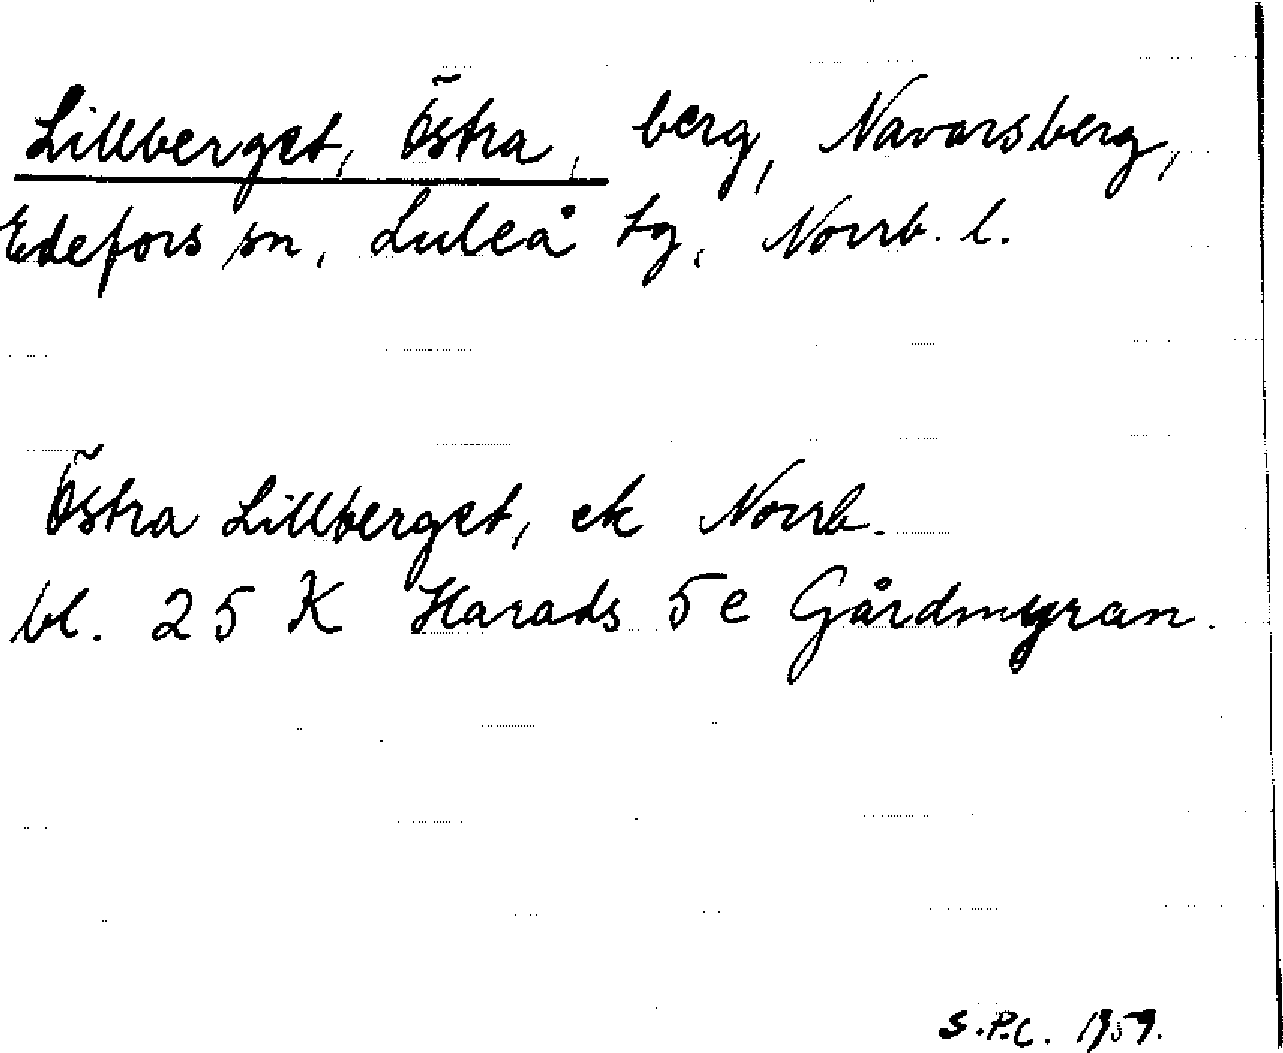 Lillberget, Östra, berg, Navarsberg,
Edefors sn, Luleå tg, Norrb. l.
Östra Lillberget, ek Norrb.
bl. 25 K Harads 5e Gårdmyran.
S.P.C. 1959.